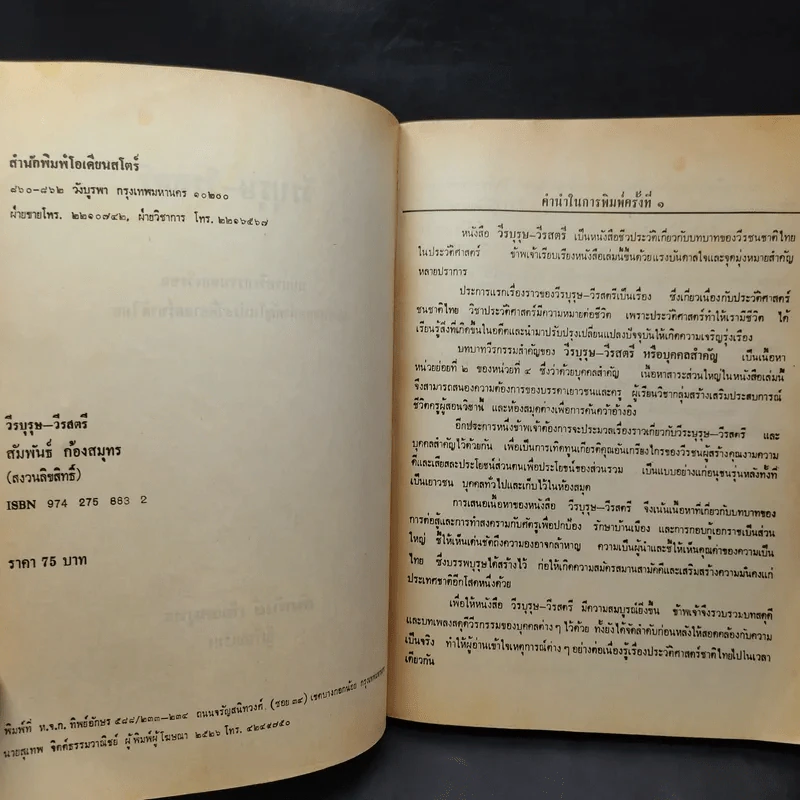 สำนักพิมพ์โอเดียนสโตร์
๘๖๐-๘๖๒ วังบูรพา กรุงเทพมหานคร ๑๐๒๐๐
ฝ่ายขายโทร. ๒๒๑๐๗๔๒, ฝ่ายวิชาการ โทร. ๒๒๑๖๕๖๗
วีรบุรุษ-วีรสตรี
สัมพันธ์ ก้องสมุทร
(สงวนลิขสิทธิ์)
ISBN 974 275 883 2
ราคา 75 บาท
พิมพ์ที่ ห.จ.ก. ทิพย์อักษร ๕๘๘/๒๓๓-๒๓๔ ถนนจรัญสนิทวงศ์ (ซอย ๓๔) เขตบางกอกน้อย กรุงเทพมหานคร
นายสุเทพ จิตต์ธรรมวาณิชย์ ผู้พิมพ์ผู้โฆษณา ๒๕๒๖ โทร. ๔๒๔๙๗๕๐
คำนำในการพิมพ์ครั้งที่ ๑
หนังสือ วีรบุรุษ-วีรสตรี เป็นหนังสือชีวประวัติเกี่ยวกับบทบาทของวีรชนชาติไทย
ในประวัติศาสตร์ ข้าพเจ้าเรียบเรียงหนังสือเล่มนี้ขึ้นด้วยแรงบันดาลใจและจุดมุ่งหมายสำคัญ
หลายปราการ
ประการแรกเรื่องราวของวีรบุรุษ-วีรสตรีเป็นเรื่อง ซึ่งเกี่ยวเนื่องกับประวัติศาสตร์
ชนชาติไทย วิชาประวัติศาสตร์มีความหมายต่อชีวิต เพราะประวัติศาสตร์ทำให้เรามีชีวิต ได้
เรียนรู้สิ่งที่เกิดขึ้นในอดีตและนำมาปรับปรุงเปลี่ยนแปลงปัจจุบันให้เกิดความเจริญรุ่งเรือง
บทบาทวีรกรรมสำคัญของ วีรบุรุษ-วีรสตรี หรือบุคคลสำคัญ เป็นเนื้อหา
หน่วยย่อยที่ ๒ ของหน่วยที่ ๔ ซึ่งว่าด้วยบุคคลสำคัญ เนื้อหาสาระส่วนใหญ่ในหนังสือเล่มนี้
จึงสามารถสนองความต้องการของบรรดาเยาวชนและครู ผู้เรียนวิชากลุ่มสร้างเสริมประสบการณ์
ชีวิตครูผู้สอนวิชานี้ และห้องสมุดต่างเพื่อการค้นคว้าอ้างอิง
อีกประการหนึ่งข้าพเจ้าต้องการจะประมวลเรื่องราวเกี่ยวกับวีระบุรุษ-วีรสตรี และ
บุคคลสำคัญไว้ด้วยกัน เพื่อเป็นการเทิดทูนเกียรติคุณอันเกรียงไกรของวีรชนผู้สร้างคุณงามความ
ดีและเสียสละประโยชน์ส่วนตนเพื่อประโยชน์ของส่วนรวม เป็นแบบอย่างแก่อนุชนรุ่นหลังทั้งที่
เป็นเยาวชน บุคคลทั่วไปและเก็บไว้ในห้องสมุด
การเสนอเนื้อหาของหนังสือ วีรบุรุษ-วีรสตรี จึงเน้นเนื้อหาที่เกี่ยวกับบทบาทของ
การต่อสู้และการทำสงครามกับศัตรูเพื่อปกป้อง รักษาบ้านเมือง และการกอบกู้เอกราชเป็นส่วน
ใหญ่ ชี้ให้เห็นเด่นชัดถึงความองอาจกล้าหาญ ความเป็นผู้นำและชี้ให้เห็นคุณค่าของความเป็น
ไทย ซึ่งบรรพบุรุษได้สร้างไว้ ก่อให้เกิดความสมัครสมานสามัคคีและเสริมสร้างความมั่นคงแก่
ประเทศชาติอีกโสดหนึ่งด้วย
เพื่อให้หนังสือ วีรบุรุษ-วีรสตรี มีความสมบูรณ์ยิ่งขึ้น ข้าพเจ้าจึงรวบรวมบทสดุดี
และบทเพลงสดุดีวีรกรรมของบุคคลต่าง ๆ ไว้ด้วย ทั้งยังได้จัดลำดับก่อนหลังให้สอดคล้องกับความ
เป็นจริง ทำให้ผู้อ่านเข้าใจเหตุการณ์ต่าง ๆ อย่างต่อเนื่องรู้เรื่องประวัติศาสตร์ชาติไทยไปในเวลา
เดียวกัน